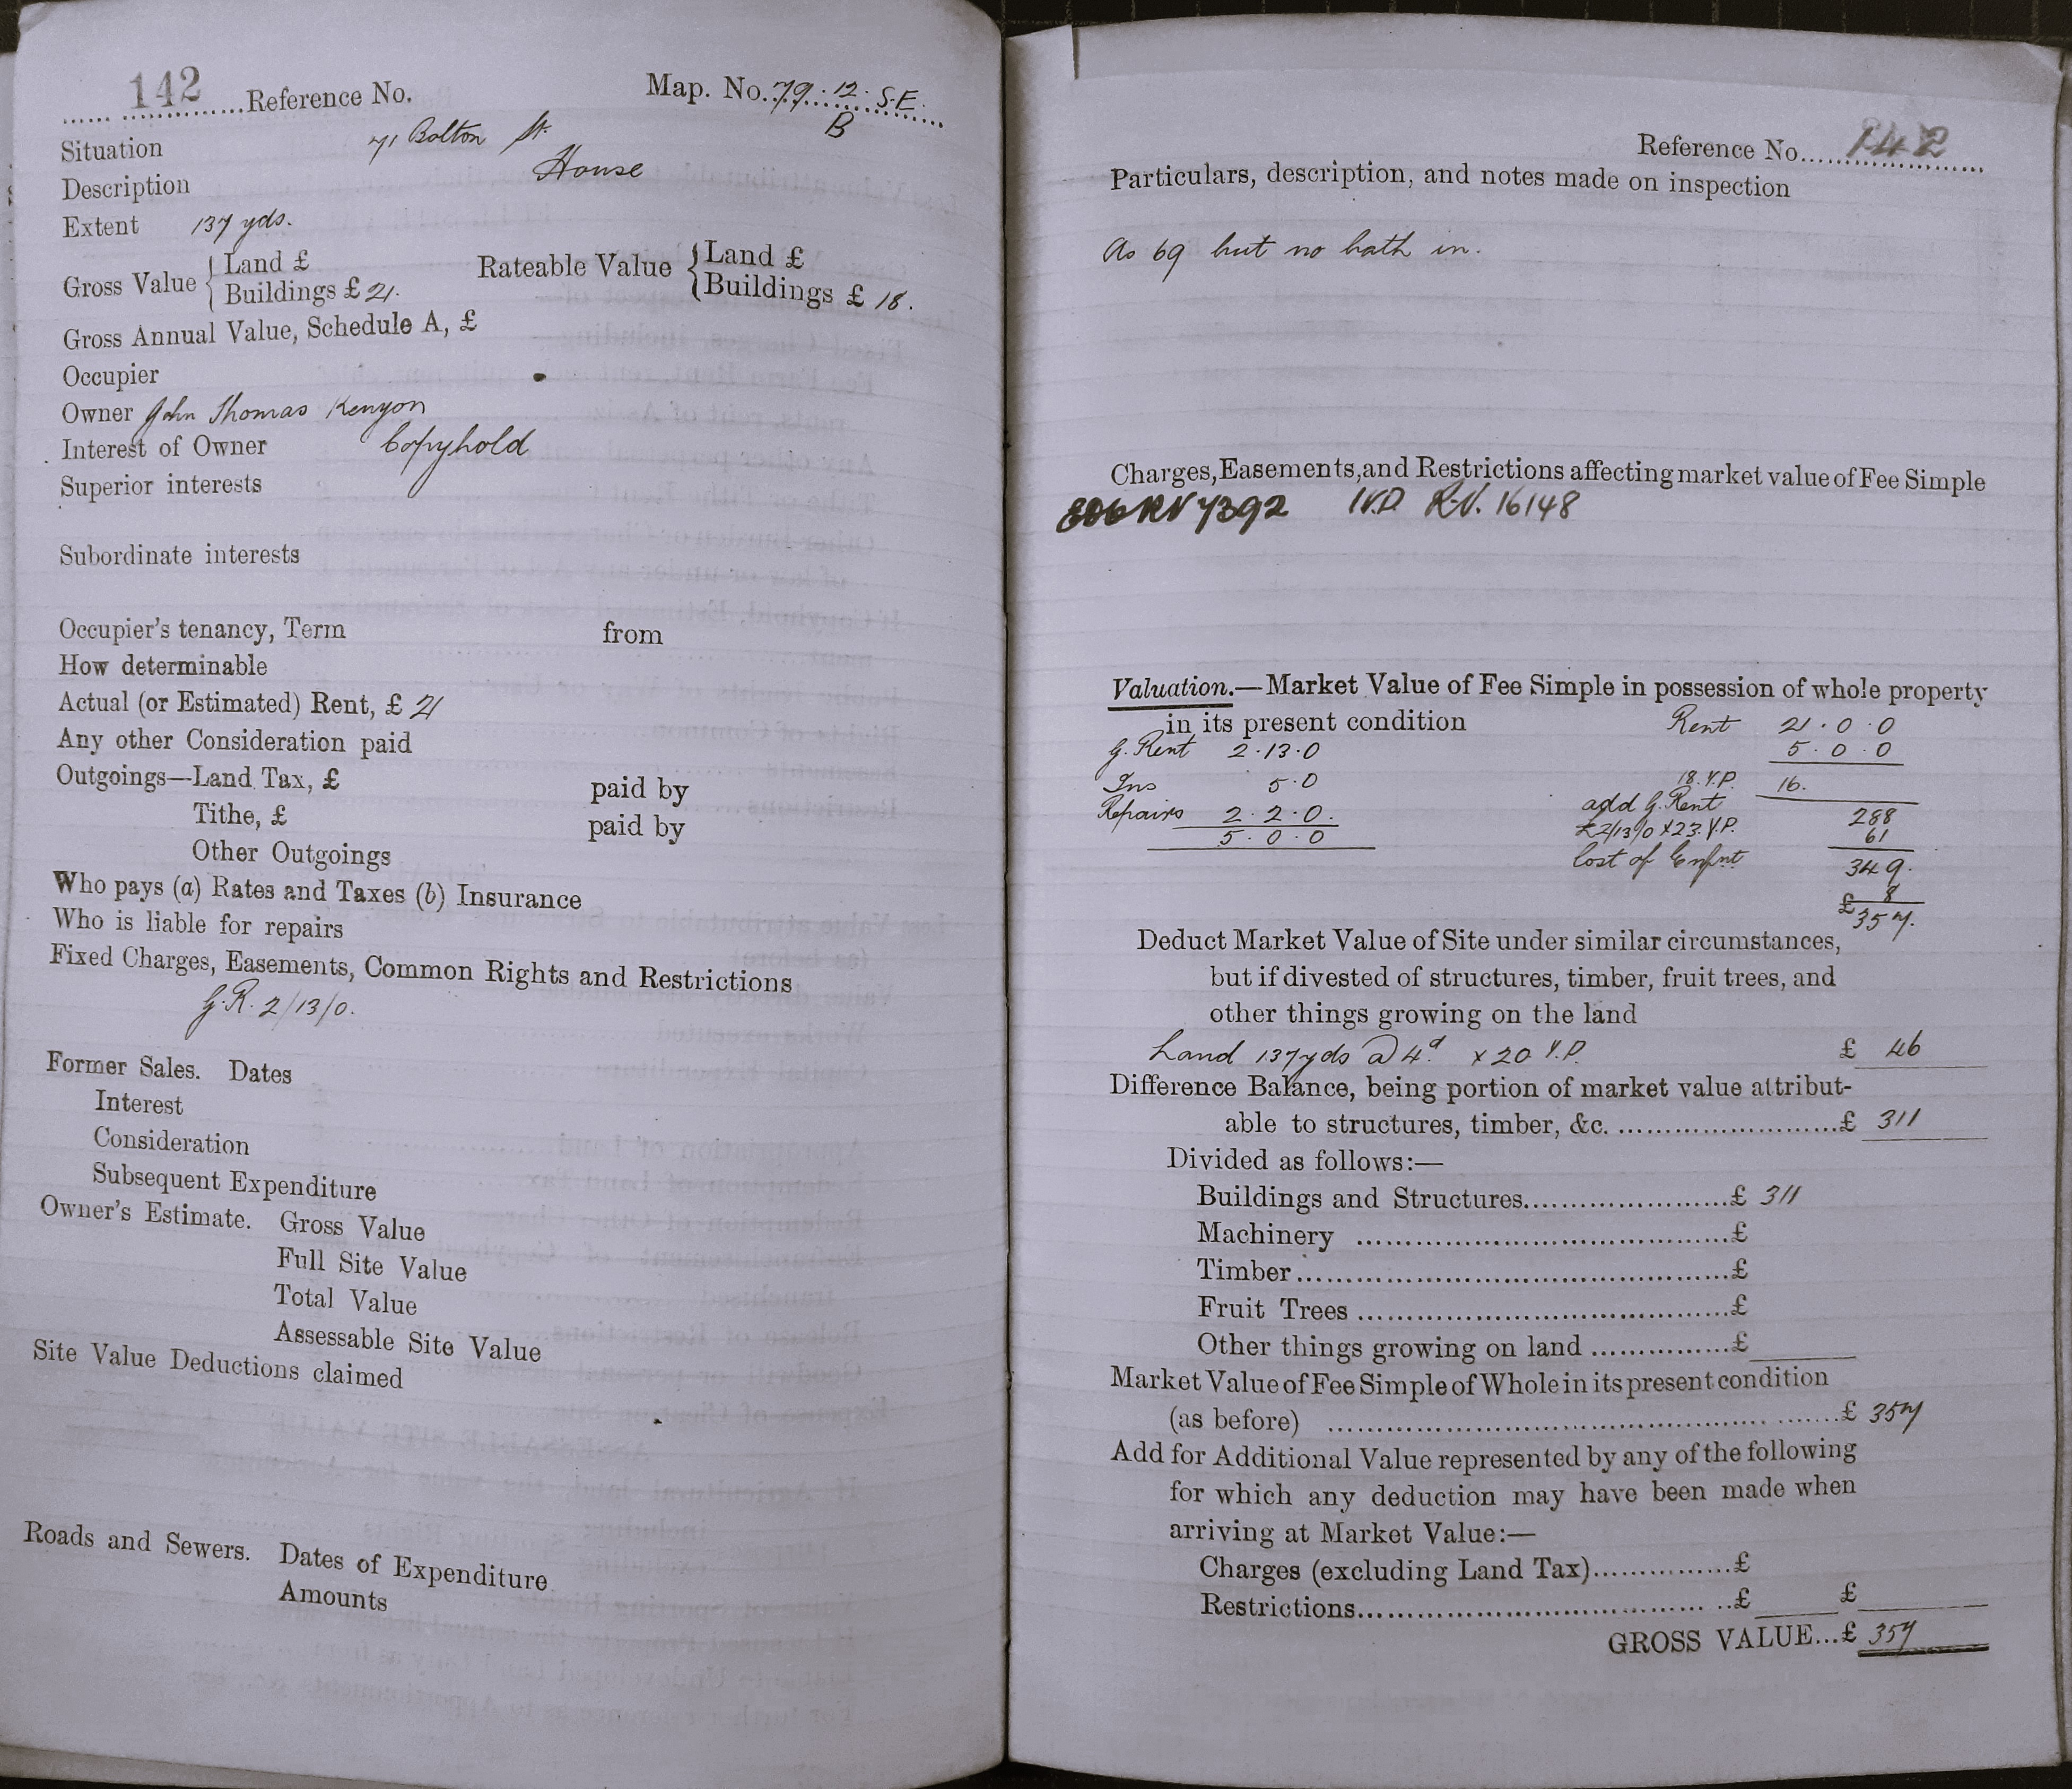 142 ...Reference No.
Map. No. 79.12.S.E.
B
Situation 71 Bolton St.
Description House
Extent 137 yds.
Gross Value { Land £
Buildings £ 21.
Rateable Value { Land £
Buildings £ 18.
Gross Annual Value, Schedule A, £
Occupier
Owner John Thomas Kenyon
Interest of Owner Copyhold
Superior interests
Subordinate interests
Occupier's tenancy, Term from
How determinable
Actual (or Estimated) Rent, £ 21
Any other Consideration paid
Outgoings—Land Tax, £ paid by
Tithe, £ paid by
Other Outgoings
Who pays (a) Rates and Taxes (b) Insurance
Who is liable for repairs
Fixed Charges, Easements, Common Rights and Restrictions
G.R. 2/13/0.
Former Sales. Dates
Interest
Consideration
Subsequent Expenditure
Owner's Estimate. Gross Value
Full Site Value
Total Value
Assessable Site Value
Site Value Deductions claimed
Roads and Sewers. Dates of Expenditure
Amounts
Reference No. 142
Particulars, description, and notes made on inspection
As 69 but no bath in.
Charges, Easements, and Restrictions affecting market value of Fee Simple
RV 7392 R.V. 16148
Valuation.—Market Value of Fee Simple in possession of whole property
in its present condition Rent 21.0.0
G. Rent 2.13.0 5.0.0
Ins 5.0 18.Y.P. 16.
Repairs 2.2.0. add G. Rent 288
5.0.0 £2/13/0 x 23.Y.P. 61
Cost of Enfnt 349.
8
£357.
Deduct Market Value of Site under similar circumstances,
but if divested of structures, timber, fruit trees, and
other things growing on the land
Land 137 yds @ 4d. x 20 Y.P. £ 46
Difference Balance, being portion of market value attribut-
able to structures, timber, &c. ........................£ 311
Divided as follows:—
Buildings and Structures........................£ 311
Machinery ........................£
Timber........................£
Fruit Trees ........................£
Other things growing on land ...............£
Market Value of Fee Simple of Whole in its present condition
(as before) ........................£ 357
Add for Additional Value represented by any of the following
for which any deduction may have been made when
arriving at Market Value:—
Charges (excluding Land Tax)...............£
Restrictions........................£ £
GROSS VALUE...£ 357